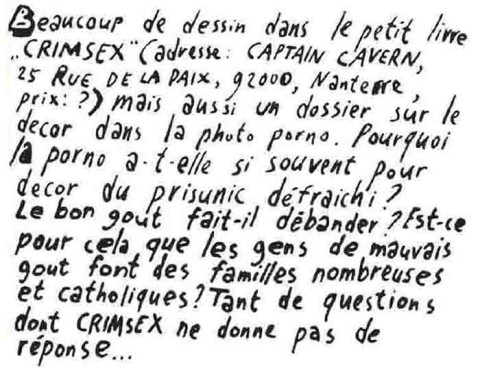 Beaucoup de dessin dans le petit livre
"CRIMSEX" (adresse: CAPTAIN CAVERN,
25 RUE DE LA PAIX, 92000, Nanterre,
prix: ?) mais aussi un dossier sur le
decor dans la photo porno. Pourquoi
la porno a-t-elle si souvent pour
decor du prisunic défraichi?
Le bon gout fait-il débander? Est-ce
pour cela que les gens de mauvais
gout font des familles nombreuses
et catholiques? Tant de questions
dont CRIMSEX ne donne pas de
réponse...